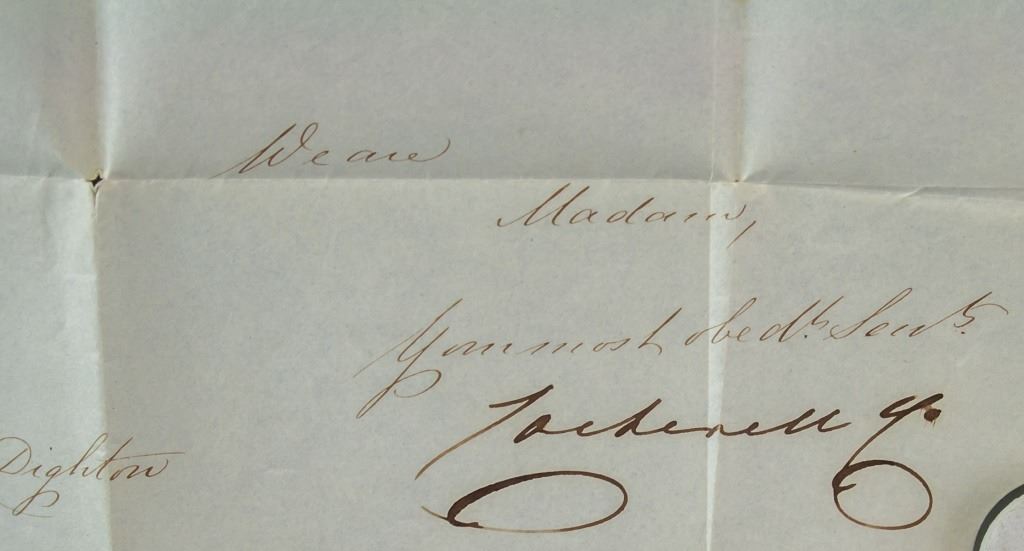 We are
Madam,
Your most obedt. Servts.
Cockerell & Co.
Dighton